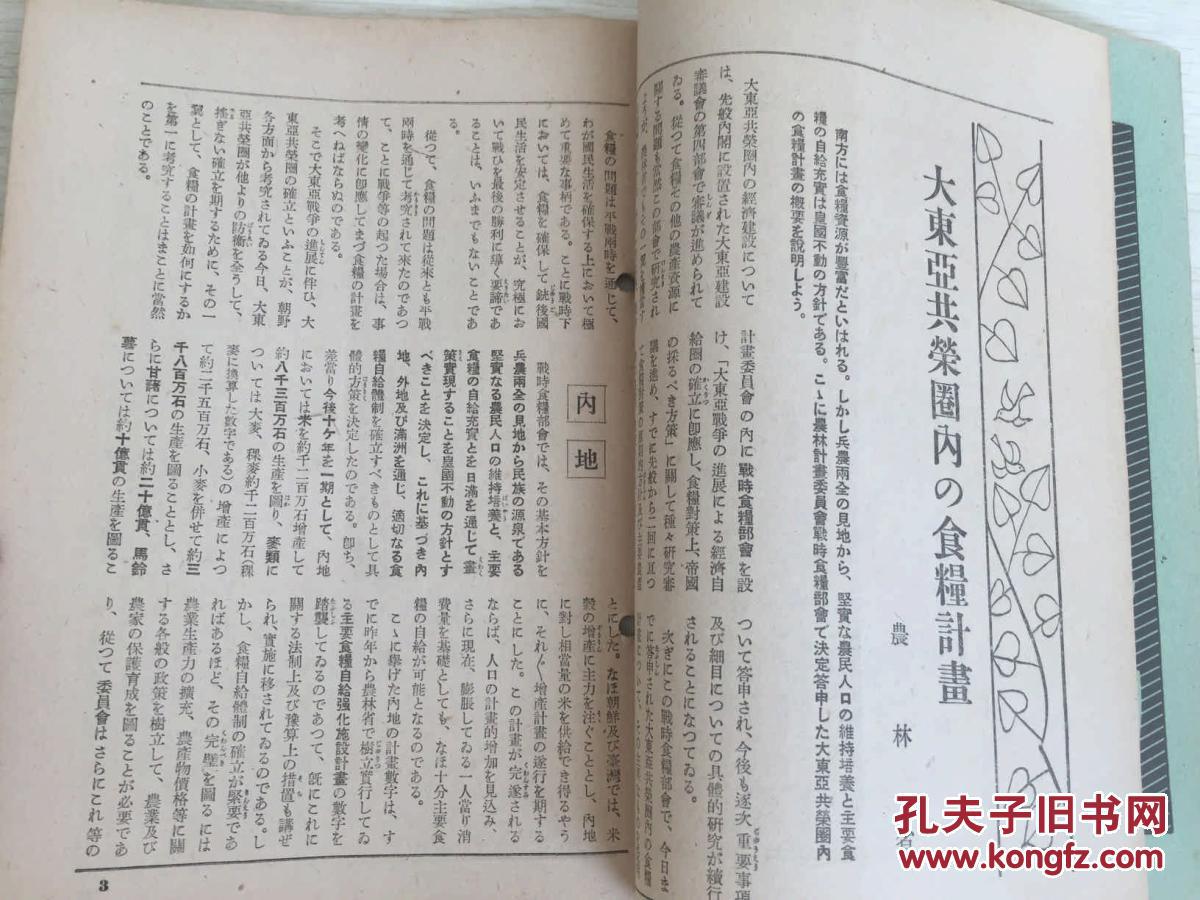 大東亞共榮圏內の食糧計畫
農林省
南方には食糧資源が豐富だといはれる。しかし兵農兩全の見地から、堅實な農民人口の維持培養と主要食
糧の自給充實は皇國不動の方針である。こゝに農林計畫委員會戰時食糧部會で決定答申した大東亞共榮圏內
の食糧計畫の概要を說明しよう。
大東亞共榮圏內の經濟建設について
は、先般內閣に設置された大東亞建設
審議會の第四部會で審議が進められて
ゐる。從つて食糧その他の農產資源に
關する問題も當然この部會で硏究され
計畫委員會の內に戰時食糧部會を設
け、「大東亞戰爭の進展による經濟自
給圏の確立に卽應し、食糧對策上、帝國
の採るべき方策」に關して種々硏究審
議を進め、すでに先般から二回に亘つ
ついて答申され、今後も逐次重要事項
及び細目についての具體的硏究が續行
されることになつてゐる。
次ぎにこの戰時食糧部會で、今日ま
でに答申された大東亞共榮圏內の食糧
食糧の問題は平戰兩時を通じて、
わが國民生活を確保する上において極
めて重要な事柄である。ことに戰時下
においては、食糧を確保して銃後國
民生活を安定させることが、究極にお
いて戰ひを最後の勝利に導く要諦であ
ることは、いふまでもないことであ
る。
從つて、食糧の問題は從來とも平戰
兩時を通じて考究されて來たのであつ
て、ことに戰爭等の起つた場合は、事
情の變化に卽應してまづ食糧の計畫を
考へねばならぬのである。
そこで大東亞戰爭の進展に伴ひ、大
東亞共榮圏の確立といふことが、朝野
各方面から考究されてゐる今日、大東
亞共榮圏が他よりの防衞を全うして、
搖ぎない確立を期するために、その一
翼として、食糧の計畫を如何にするか
を第一に考究することはまことに當然
のことである。
內地
戰時食糧部會では、その基本方針を
兵農兩全の見地から民族の源泉である
堅實なる農民人口の維持培養と、主要
食糧の自給充實とを日滿を通じて畫
策實現することを皇國不動の方針とす
べきことを決定し、これに基づき內
地、外地及び滿洲を通じ、適切なる食
糧自給體制を確立すべきものとして具
體的方策を決定したのである。卽ち、
差當り今後十ケ年を一期として、內地
においては米を約千二百万石增產して
約八千三百万石の生產を圖り、麥類に
ついては大麥、稞麥約千二百万石(稞
麥に換算した數字である)の增產によつ
て約二千五百万石、小麥を併せて約三
千八百万石の生產を圖ることとし、さ
らに甘藷については約二十億貫、馬鈴
薯については約十億貫の生產を圖るこ
とにした。なほ朝鮮及び臺灣では、米
穀の增產に主力を注ぐこととし、內地
に對し相當量の米を供給でき得るやう
に、それ〲增產計畫の遂行を期する
ことにした。この計畫が完遂される
ならば、人口の計畫的增加を見込み、
さらに現在、膨脹してゐる一人當り消
費量を基礎としても、なほ十分主要食
糧の自給が可能となるのである。
こゝに擧げた內地の計畫數字は、す
でに昨年から農林省で樹立實行してゐ
る主要食糧自給强化施設計畫の數字を
踏襲してゐるのであつて、旣にこれに
關する法制上及び豫算上の措置も講ぜ
られ、實施に移されてゐるのである。し
かし、食糧自給體制の確立が緊要であ
ればあるほど、その完璧を圖るには
農業生產力の擴充、農產物價格等に關
する各般の政策を樹立して、農業及び
農家の保護育成を圖ることが必要であ
り、從つて委員會はさらにこれ等の
3
孔夫子旧书网
www.kongfz.com